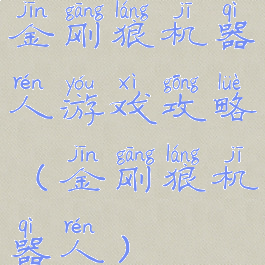 jīn gāng láng jī qì
金刚狼机器
rén yóu xì gōng luè
人游戏攻略
jīn gāng láng jī
（金刚狼机
qì rén
器人）